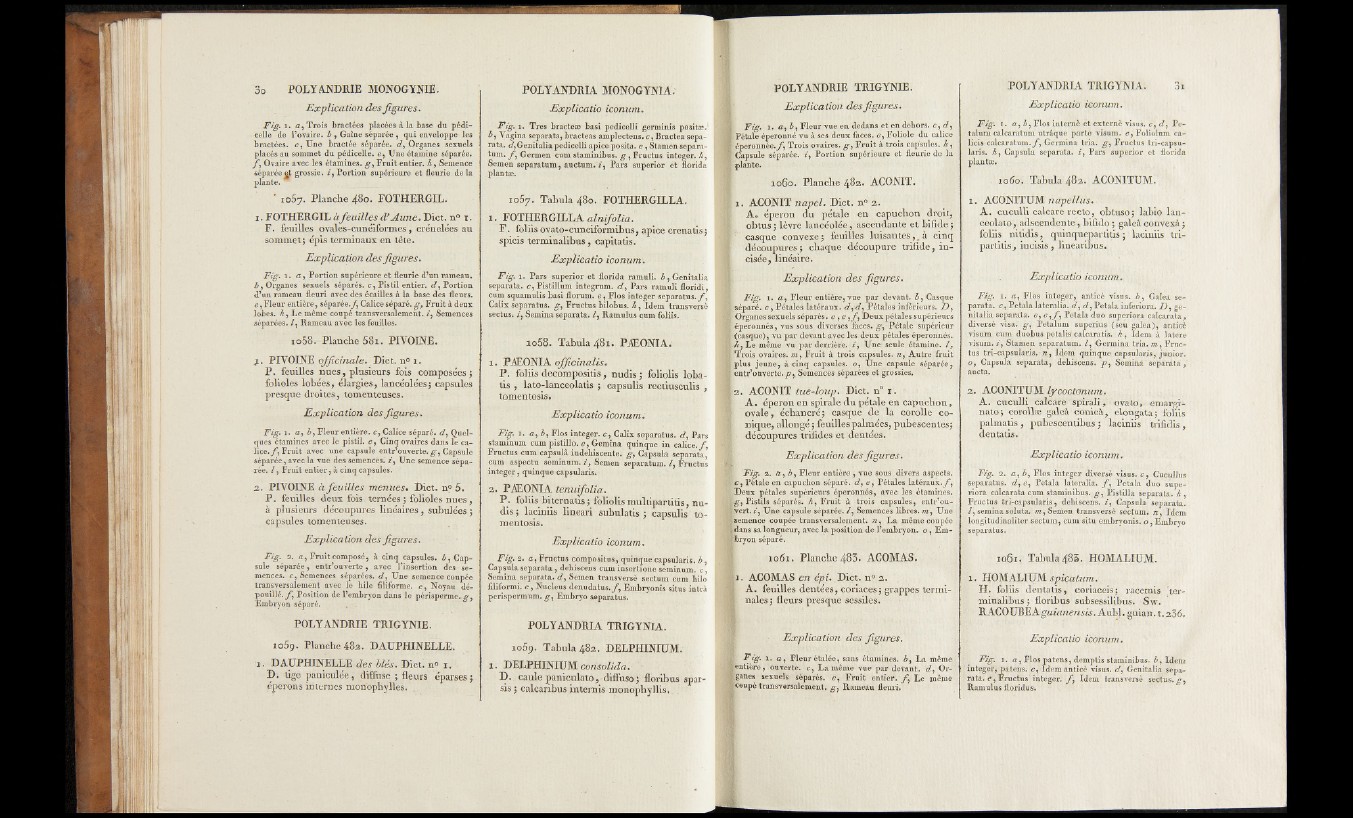 30 POLYANDRIE MONOGYNIE.
Explication des figures.
Fig. 1. a, Trois bractées placées à la base du pédi-
celle de l'ovaire. b, Gaîne séparée, qui enveloppe les
bractées. c, Une bractée séparée. d, Organes sexuels
placés au sommet du pédicelle. e, Une étamine séparée.
f, Ovaire avec les étamines. g, Fruit entier. h, Semence
séparée et grossie. i, Portion supérieure et fleurie de la
plante.
1057. Planche 480. FOTHERGIL.
1. FOTHERGIL à feuilles d'Aune. Dict. n° 1.
F. feuilles ovales-cunéiformes, crénelées au
sommet; épis terminaux en tête.
Explication des figures.
Fig. 1. a, Portion supérieure et fleurie d'un rameau.
b, Organes sexuels séparés. c, Pistil entier. d, Portion
d'un rameau fleuri avec des écailles à la base des fleurs.
e, Fleur entière, séparée. f, Calice séparé. g, Fruit à deux
lobes. h, Le même coupé transversalement. i, Semences
séparées. l, Rameau avec les feuilles.
1058. Planche 581. PIVOINE.
1. PIVOINE officinale. Dict. n° 1.
P. feuilles nues, plusieurs fois composées;
folioles lobées, élargies, lancéolées; capsules
presque droites, tomenteuses.
Explication des figures.
Fig. 1. a, b, Fleur entière. c, Calice séparé. d, Quel-
ques étamines avec le pistil. e, Cinq ovaires dans le ca-
lice. f, Fruit avec une capsule entr'ouverte. g, Capsule
séparée, avec la vue des semences. i, Une semence sépa-
rée. l, Fruit entier, à cinq capsules.
2. PIVOINE à feuilles menues. Dict. n° 5.
P. feuilles deux fois ternées; folioles nues,
à plusieurs découpures linéaires, subulées;
capsules tomenteuses.
Explication des figures.
Fig. 2. a, Fruit composé, à cinq capsules. b, Cap-
sule séparée, entr'ouverte, avec l'insertion des se-
mences. c, Semences séparées. d, Une semence coupée
transversalement avec le hile filiforme. e, Noyau dé-
pouillé. f, Position de l'embryon dans le périsperme. g,
Embryon séparé.
POLYANDRIE TRIGYNIE.
1059. Planche 482. DAUPHINELLE.
1. DAUPHINELLE des blés. Dict. n° 1.
D. tige paniculée, diffuse; fleurs éparses;
éperons internes monophylles.
POLYANDRIA MONOGYNIA.
Explicatio iconum.
Fig. 1. Tres bracteæ basi pedicelli germinis positæ.
b, Vagina separata, bracteas amplectens. c, Bractea sepa-
rata. d, Genitalia pedicelli apice posita. e, Stamen separa-
tum. f, Germen cum staminibus. g, Fructus integer. h,
Semen separatum, auctum. i, Pars superior et florida
plantæ.
1057. Tabula 480. FOTHERGILLA.
1. FOTHERGILLA alnifolia.
F. foliis ovato-cuneiformibus, apice crenatis;
spicis terminalibus, capitatis.
Explicatio iconum.
Fig. 1. Pars superior et florida ramuli. b, Genitalia
separata. c, Pistillum integrum. d, Pars ramuli floridi,
cum squamulis basi florum. e, Flos integer separatus. f,
Calix separatus. g, Fructus bilobus. h, Idem transversè
sectus. i, Semina separata. l, Ramulus cum foliis.
1058. Tabula 481. PÆONIA.
1. PÆONIA officinalis.
P. foliis decompositis, nudis; foliolis loba-
tis, lato-lanceolatis; capsulis rectiusculis,
tomentosis.
Explicatio iconum.
Fig. 1. a, b, Flos integer. c, Calix separatus. d, Pars
staminum cum pistillo. e, Gemina quinque in calice. f,
Fructus cum capsulâ indehiscente. g, Capsula separata,
cum aspectu seminum. i, Semen separatum. l, Fructus
integer, quinque capsularis.
2. PÆONIA tenuifolia.
P. foliis biternatis; foliolis multipartitis, nu-
dis; laciniis lineari subulatis; capsulis to-
mentosis.
Explicatio iconum.
Fig. 2. a, Fructus compositus, quinque capsularis. b,
Capsula separata, dehiscens cum insertione seminum. c,
Semina separata. d, Semen transversè sectum cum hilo
filiformi. e, Nucleus denudatus. f, Embryonis situs intrà
perispermum. g, Embryo separatus.
POLYANDRIA TRIGYNIA.
1059. Tabula 482. DELPHINIUM.
1. DELPHINIUM consolida.
D. caule paniculato, diffuso; floribus spar-
sis; calcaribus internis monophyllis.
POLYANDRIE TRIGYNIE.
Explication des figures.
Fig. 1. a, b, Fleur vue en dedans et en dehors. c, d,
Pétale éperonné vu à ses deux faces. e, Foliole du calice
éperonnée. f, Trois ovaires. g, Fruit à trois capsules. h,
Capsule séparée. i, Portion supérieure et fleurie de la
plante.
1060. Planche 482. ACONIT.
1. ACONIT napel. Dict. n° 2.
A. éperon du pétale en capuchon droit,
obtus; lèvre lancéolée, ascendante et bifide;
casque convexe; feuilles luisantes, à cinq
découpures; chaque découpure trifide, in-
cisée, linéaire.
Explication des figures.
Fig. 1. a, Fleur entière, vue par devant. b, Casque
séparé. c, Pétales latéraux. d, d, Pétales inférieurs. D,
Organes sexuels séparés. e, e, f, Deux pétales supérieurs
éperonnés, vus sous diverses faces. g, Pétale supérieur
(casque), vu par devant avec les deux pétales éperonnés.
h, Le même vu par derrière. i, Une seule étamine. l,
Trois ovaires. m, Fruit à trois capsules. n, Autre fruit
plus jeune, à cinq capsules. o, Une capsule séparée,
entr'ouverte. p, Semences séparées et grossies.
2. ACONIT tue-loup. Dict. n° 1.
A. éperon en spirale du pétale en capuchon,
ovale, échancré; casque de la corolle co-
nique, allongé; feuilles palmées, pubescentes;
découpures trifides et dentées.
Explication des figures.
Fig. 2. a, b, Fleur entière, vue sous divers aspects.
c, Pétale en capuchon séparé. d, e, Pétales latéraux. f,
Deux pétales supérieurs éperonnés, avec les étamines.
g, Pistils séparés. h, Fruit à trois capsules, entr'ou-
vert. i, Une capsule séparée. l, Semences libres. m, Une
semence coupée transversalement. n, La même coupée
dans sa longueur, avec la position de l'embryon. o, Em-
bryon séparé.
1061. Planche 483. ACOMAS.
1. ACOMAS en épi. Dict. n° 2.
A. feuilles dentées, coriaces; grappes termi-
nales; fleurs presque sessiles.
Explication des figures.
Fig. 1. a, Fleur étalée, sans étamines. b, La même
entière, ouverte. c, La même vue par devant. d, Or-
ganes sexuels séparés. e, Fruit entier. f, Le même
coupé transversalement. g, Rameau fleuri.
POLYANDRIA TRIGYNIA. 31
Explicatio iconum.
Fig. 1. a, b, Flos internè et externè visus. c, d, Pe-
talum calcaratum utrâque parte visum. e, Foliolum ca-
licis calcaratum. f, Germina tria. g, Fructus tri-capsu-
laris. h, Capsula separata. i, Pars superior et florida
plantæ.
1060. Tabula 482. ACONITUM.
1. ACONITUM napellus.
A. cuculli calcare recto, obtuso; labio lan-
ceolato, adscendente, bifido; galeâ convexâ;
foliis nitidis, quinquepartitis; laciniis tri-
partitis, incisis, linearibus.
Explicatio iconum.
Fig. 1. a, Flos integer, anticè visus. b, Galea se-
parata. c, Petala lateralia. d, d, Petala inferiora. D, ge-
nitalia separata. e, e, f, Petala duo superiora calcarata,
diversè visa. g, Petalum superius (seu galea), anticè
visum cum duobus petalis calcaratis. h, Idem à latere
visum. i, Stamen separatum. l, Germina tria. m, Fruc-
tus tri-capsularis. n, Idem quinque capsularis, junior.
o, Capsula separata, dehiscens. p, Semina separata,
aucta.
2. ACONITUM lycoctonum.
A. cuculli calcare spirali, ovato, emargi-
nato; corollæ galeâ conicâ, elongata; foliis
palmatis, pubescentibus; laciniis trifidis,
dentatis.
Explicatio iconum.
Fig. 2. a, b, Flos integer diversè visus. c, Cucullus
separatus. d, e, Petala lateralia. f, Petala duo supe-
riora calcarata cum staminibus. g, Pistilla separata. h,
Fructus tri-capsularis, dehiscens. i, Capsula separata.
l, semina soluta. m, Semen transversè sectum. n, Idem
longitudinaliter sectum, cum situ embryonis. o, Embryo
separatus.
1061. Tabula 483. HOMALIUM.
1. HOMALIUM spicatum.
H. foliis dentatis, coriaceis; racemis ter-
minalibus; floribus subsessilibus. Sw.
RACOUBEA guianensis. Aubl. guian. t. 236.
Explicatio iconum.
Fig. 1. a, Flos patens, demptis staminibus. b, Idem
integer, patens. c, Idem anticè visus. d, Genitalia sepa-
rata. e, Fructus integer. f, Idem transversè sectus. g,
Ramulus floridus.